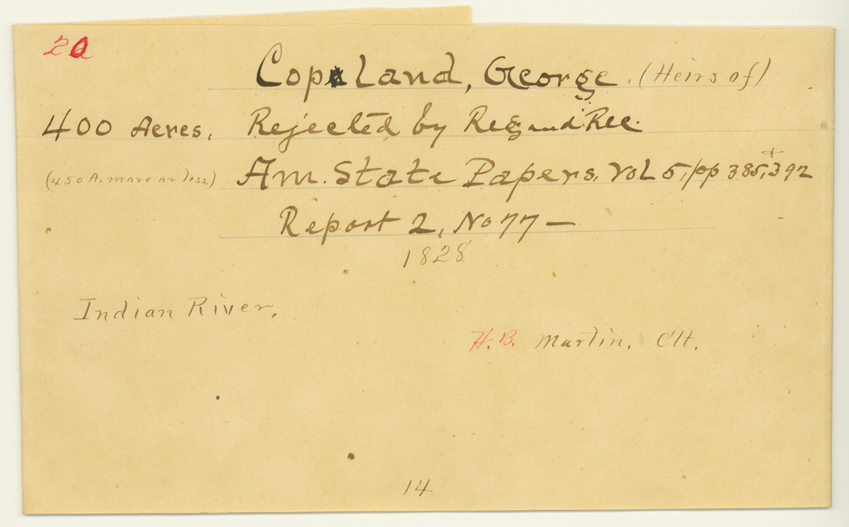 20
Copeland, George. (Heirs of)
400 Acres. Rejected by Reg and Rec.
(450 A. more or less) Am. State Papers, Vol 5, pp 385, + 392
Report 2, No 77 —
1828
Indian River.
H.B. Martin, Clk.
14